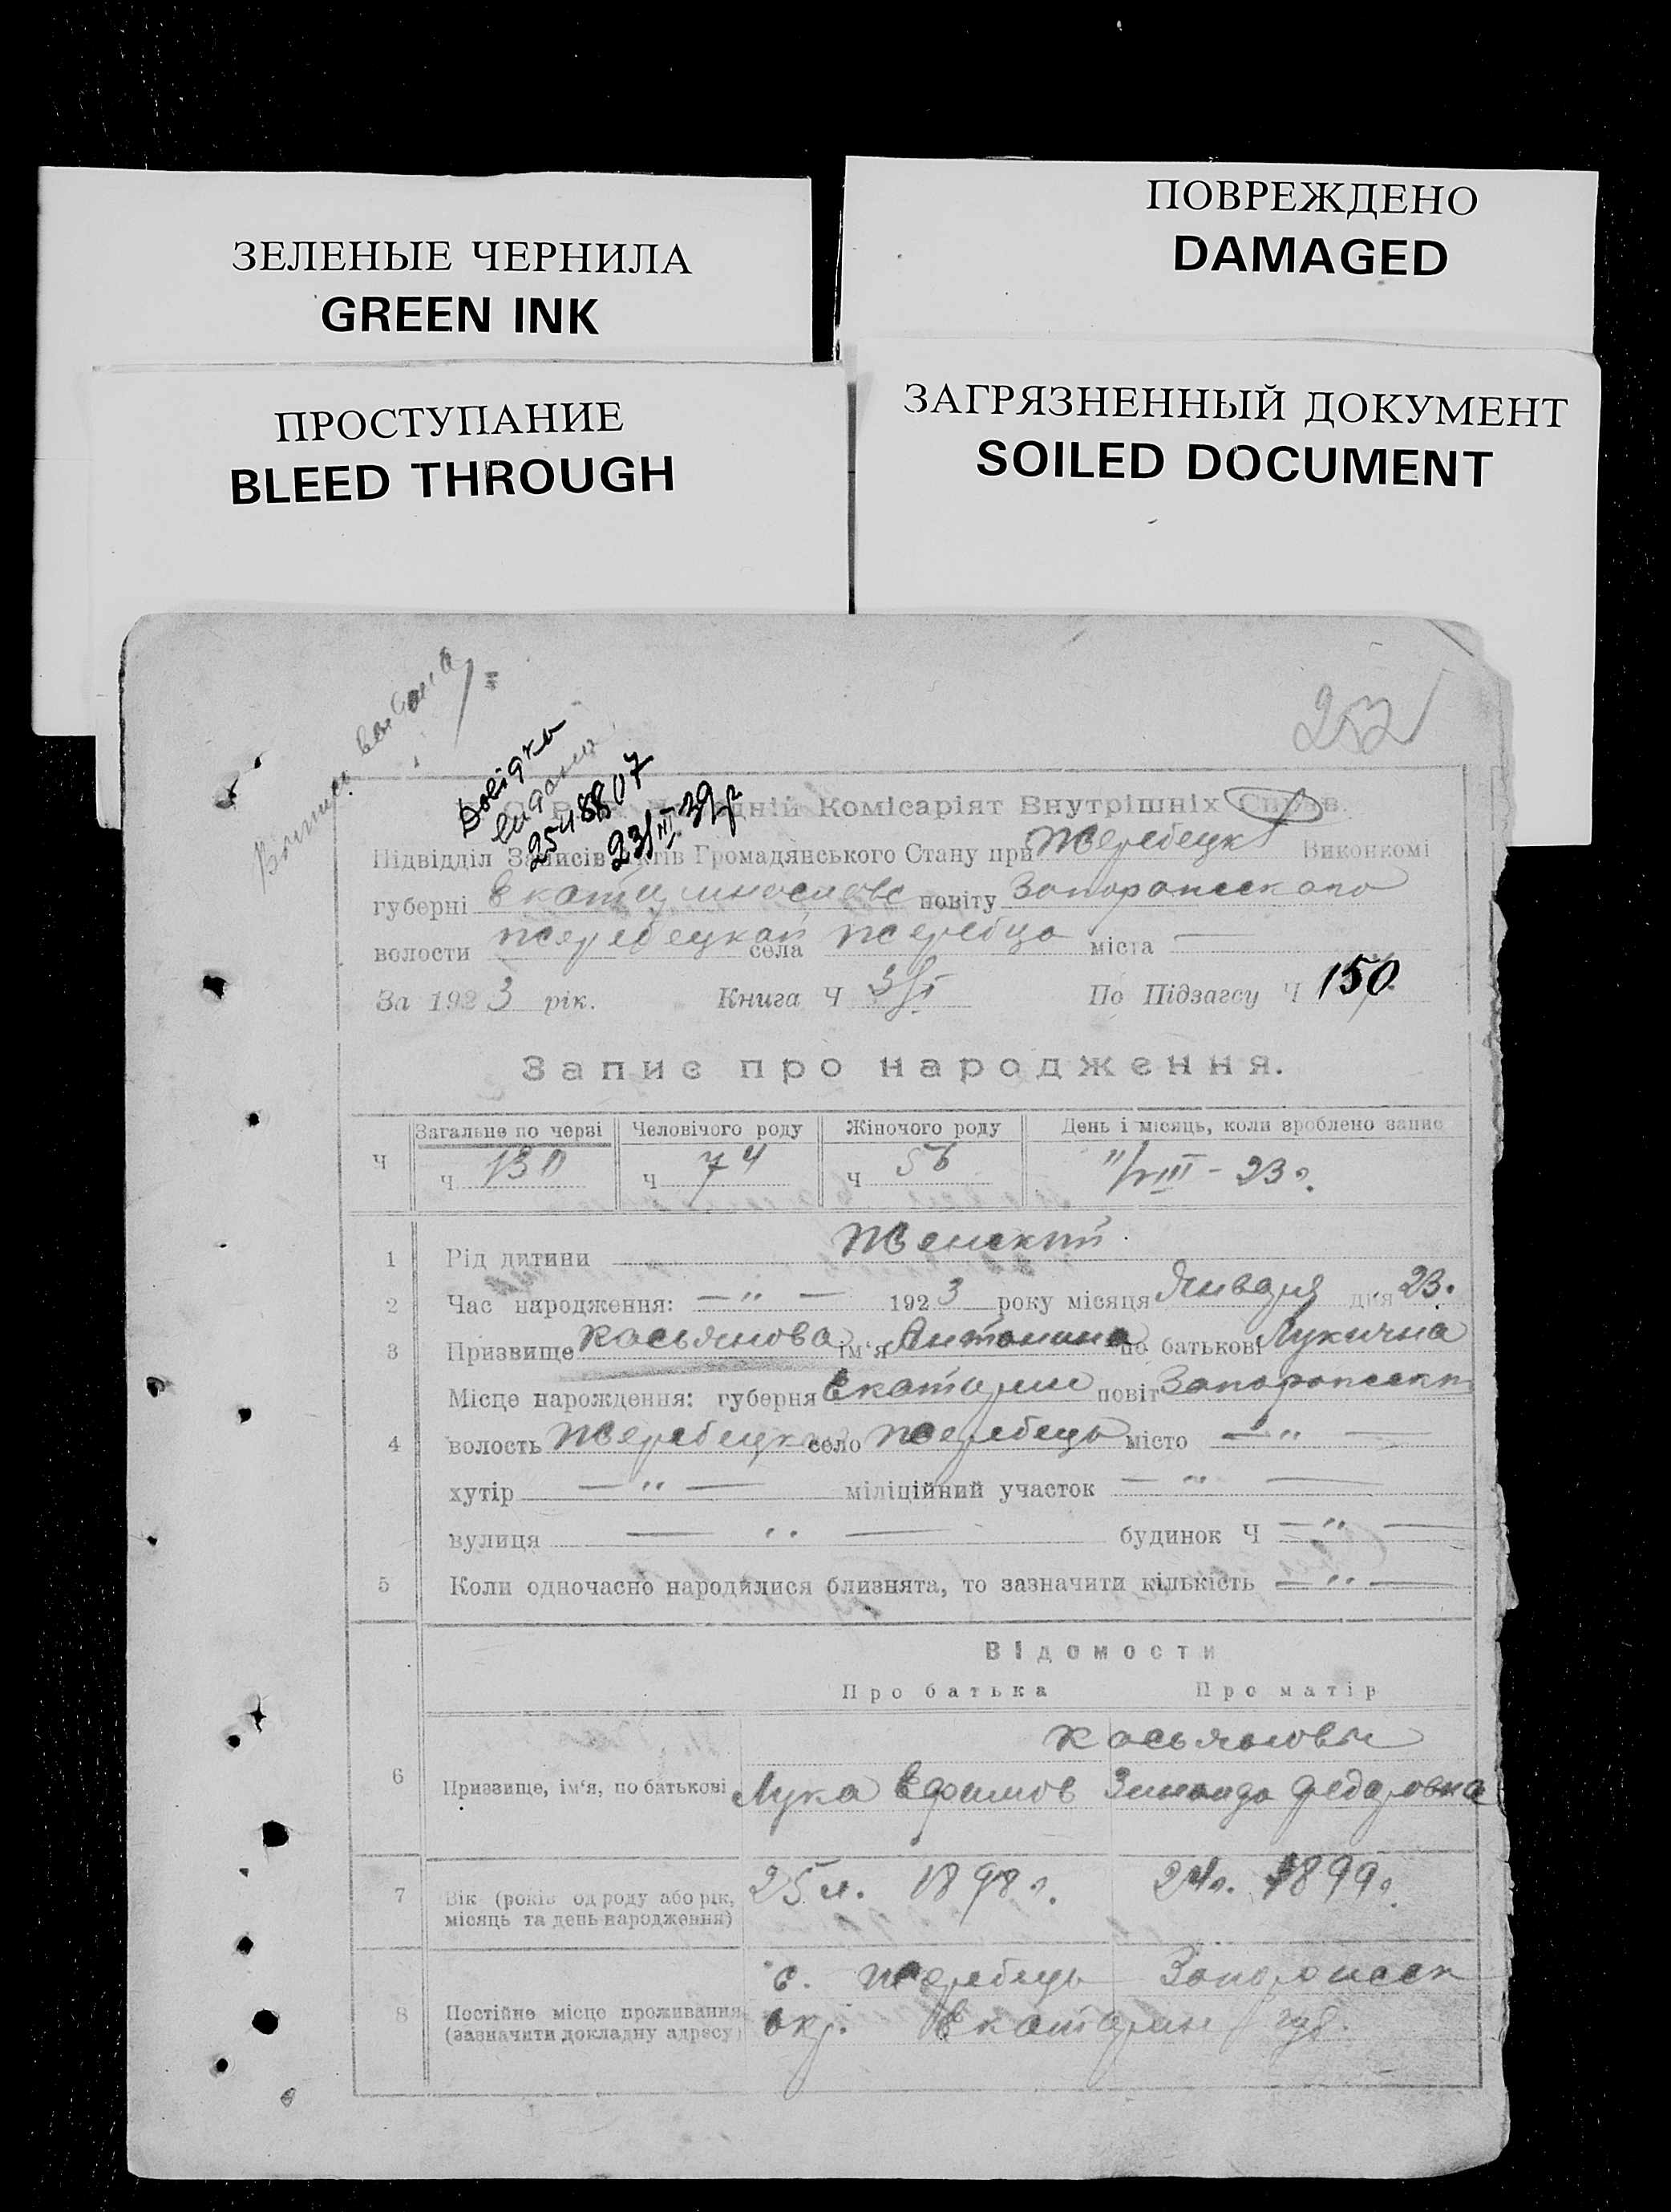 ЗЕЛЕНЫЕ ЧЕРНИЛА
GREEN INK
ПОВРЕЖДЕНО
DAMAGED
ПРОСТУПАНИЕ
BLEED THROUGH
ЗАГРЯЗНЕННЫЙ ДОКУМЕНТ
SOILED DOCUMENT
252
Довідка
видана
23/III 39р
Комісаріят Внутрішніх Справ.
Підвідділ Записів Актів Громадянського Стану при Жеребецк Виконкомі
губерні повіту Запорожского
волости Жеребецкой села Жеребца міста —
За 1923 рік. Книга Ч По Підзагсу Ч 150
Запис про народження.
Ч Загальне по черзі Человічого роду Жіночого роду День і місяць, коли зроблено запис
Ч 130 Ч 74 Ч 56 "/VIII - 23 г.
1 Рід дитини Женский
2 Час народження: — " — 1923 року місяця Января дня 23.
3 Призвище Касьянова ім'я Антонина по батькові Лукична
Місце народження: губерня Екатерин повіт Запорожский
4 волость Жеребецк село Жеребець місто — " —
хутір — " — міліційний участок — " —
вулиця — " — будинок Ч — " —
5 Коли одночасно народилися близнята, то зазначити кількість — " —
Відомости
Про батька Про матір
Касьяновы
6 Призвище, ім'я, по батькові Лука Ефимов Зинаида Федоровна
7 Вік (років од роду або рік, місяць та день народження) 25 л. 1898 г. 24 л. 1899 г.
8 Постійне місце проживання (зазначити докладну адресу)
с. Жеребець Запорожск
окр. Екатерин губ.